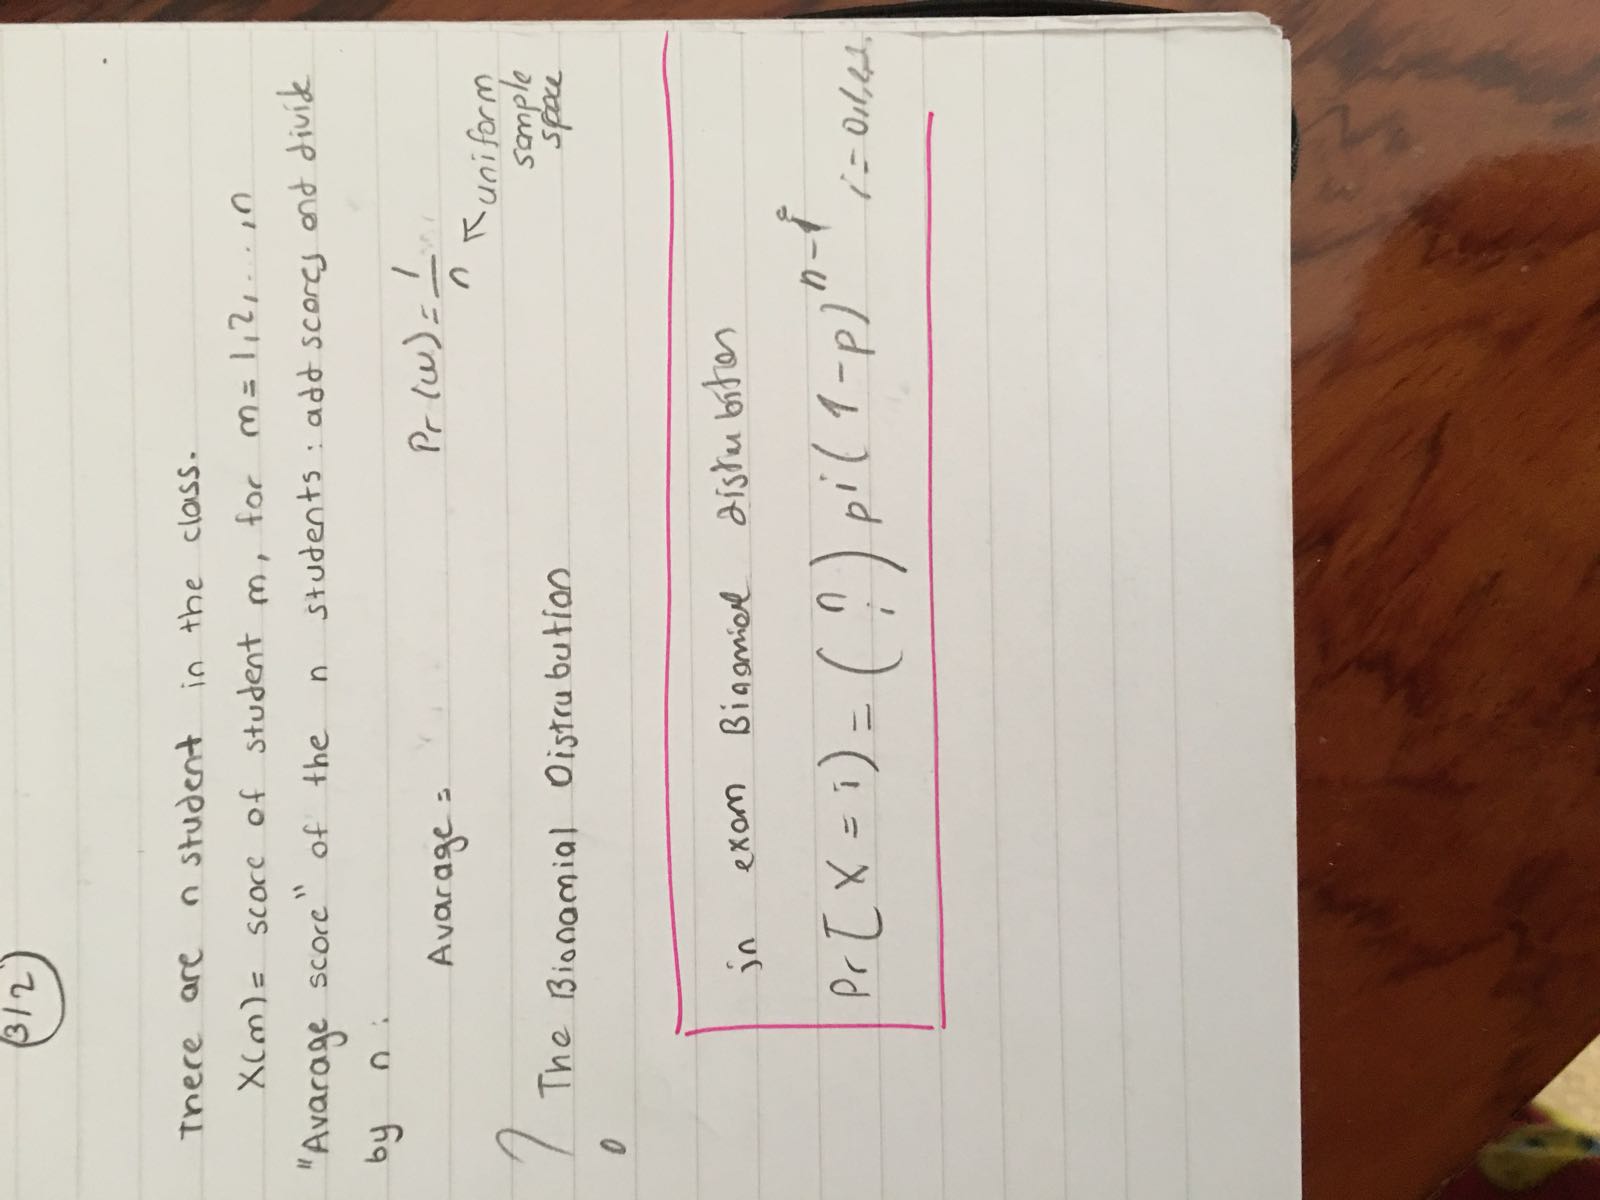 3/2
There are n student in the class.
X(m) = score of student m, for m = 1,2,...,n
"Avarage score" of the n students : add scores and divide
by n :
Avarage =
Pr(ω) = 1/n
↖ uniform
sample
space
? The Bionamial Distrubution
in exam Binomial distrubition
Pr[X = i) = (n i) p^i (1-p)^{n-i} i = 0,1,2,